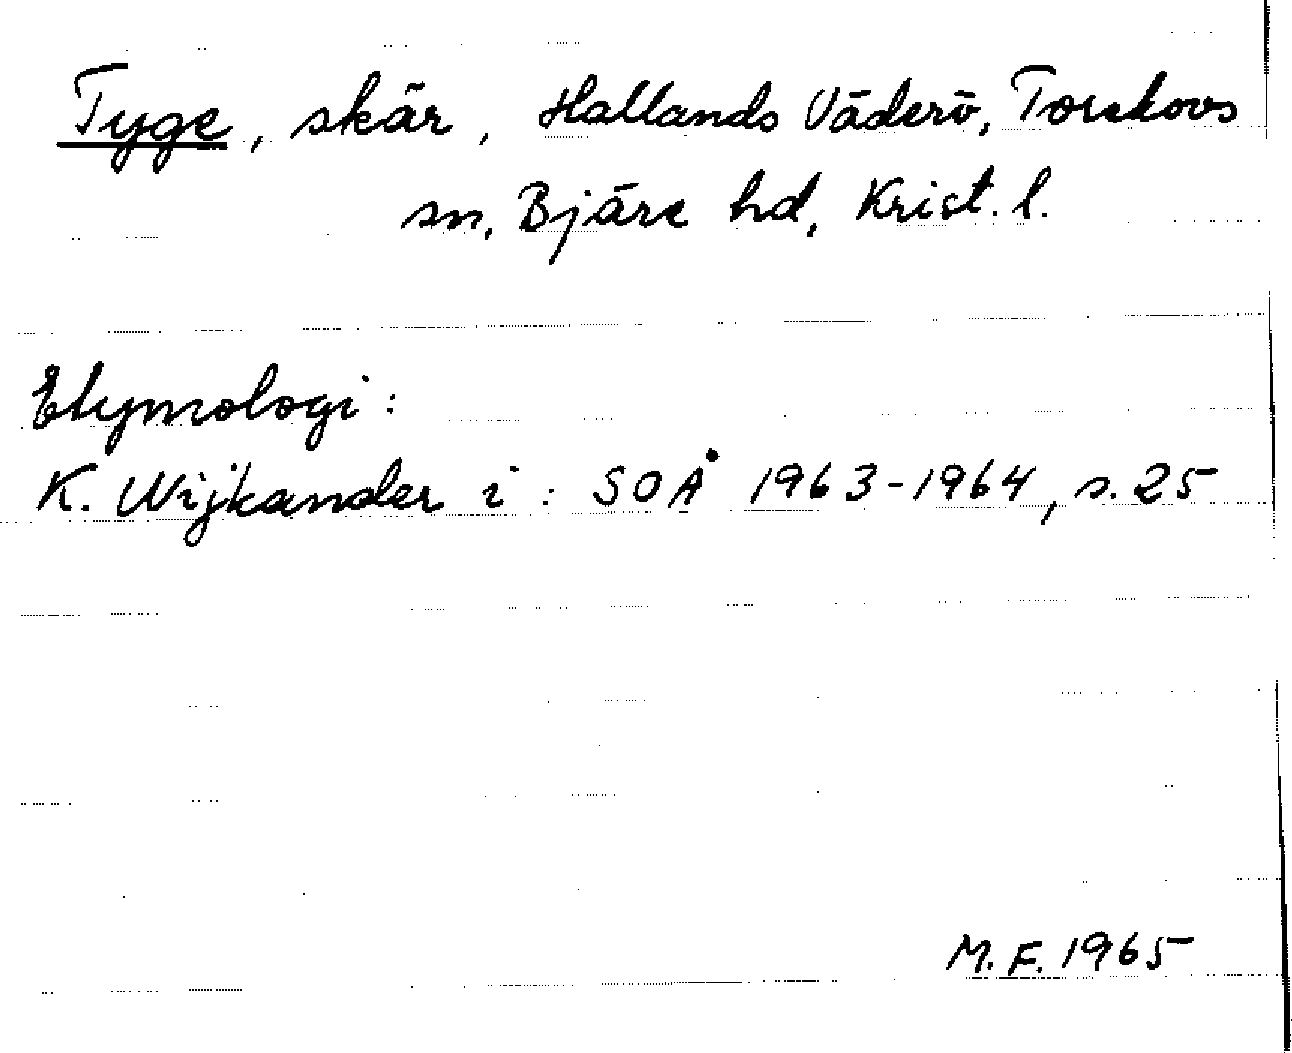 Tyge, skär, Hallands Väderö, Torekovs
sn, Bjäre hd, Krist. l.
Etymologi:
K. Wijkander i: SOÅ 1963-1964, s. 25
M. F. 1965